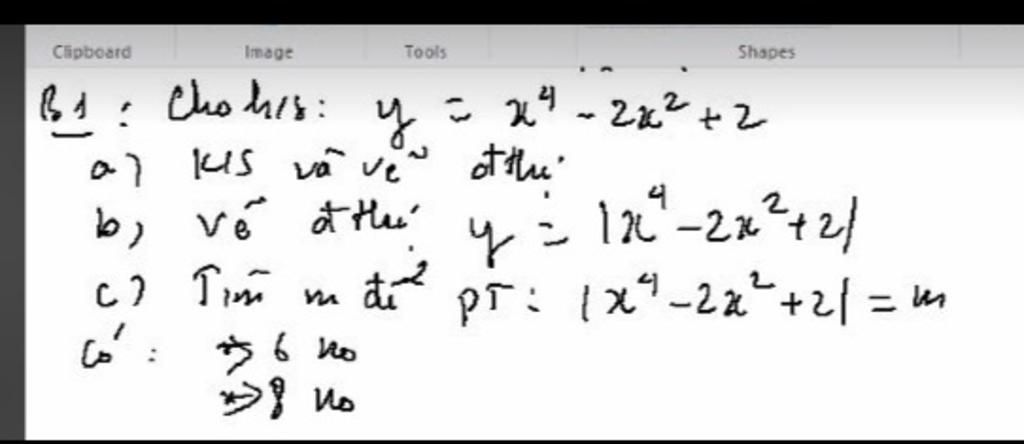 Clipboard Image Tools Shapes
B1: Cho h/s: y = x⁴ - 2x² + 2
a) K/S và vẽ đ thị
b) Vẽ đ thị y = |x⁴ - 2x² + 2|
c) Tìm m để PT: |x⁴ - 2x² + 2| = m
Có: * 6 no
* 8 no